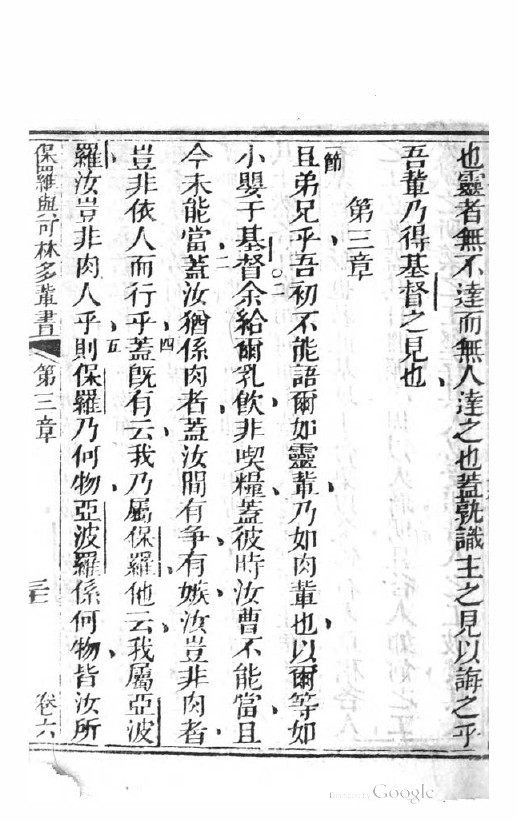 也靈者無不達而無人達之也蓋孰識主之見以誨之乎
吾輩乃得基督之見也
第三章
節
且弟兄乎吾初不能語爾如靈輩乃如肉輩也以爾等如
小嬰于基督余給爾乳飲非喫糧蓋彼時汝曹不能當且
今未能當蓋汝猶係肉者蓋汝間有争有嫉汝豈非肉者
豈非依人而行乎蓋既有云我乃屬保羅他云我屬亞波
羅汝豈非肉人乎則保羅乃何物亞波羅係何物皆汝所
保羅與可林多輩書
第三章
卷六
二
三
四
五
Google